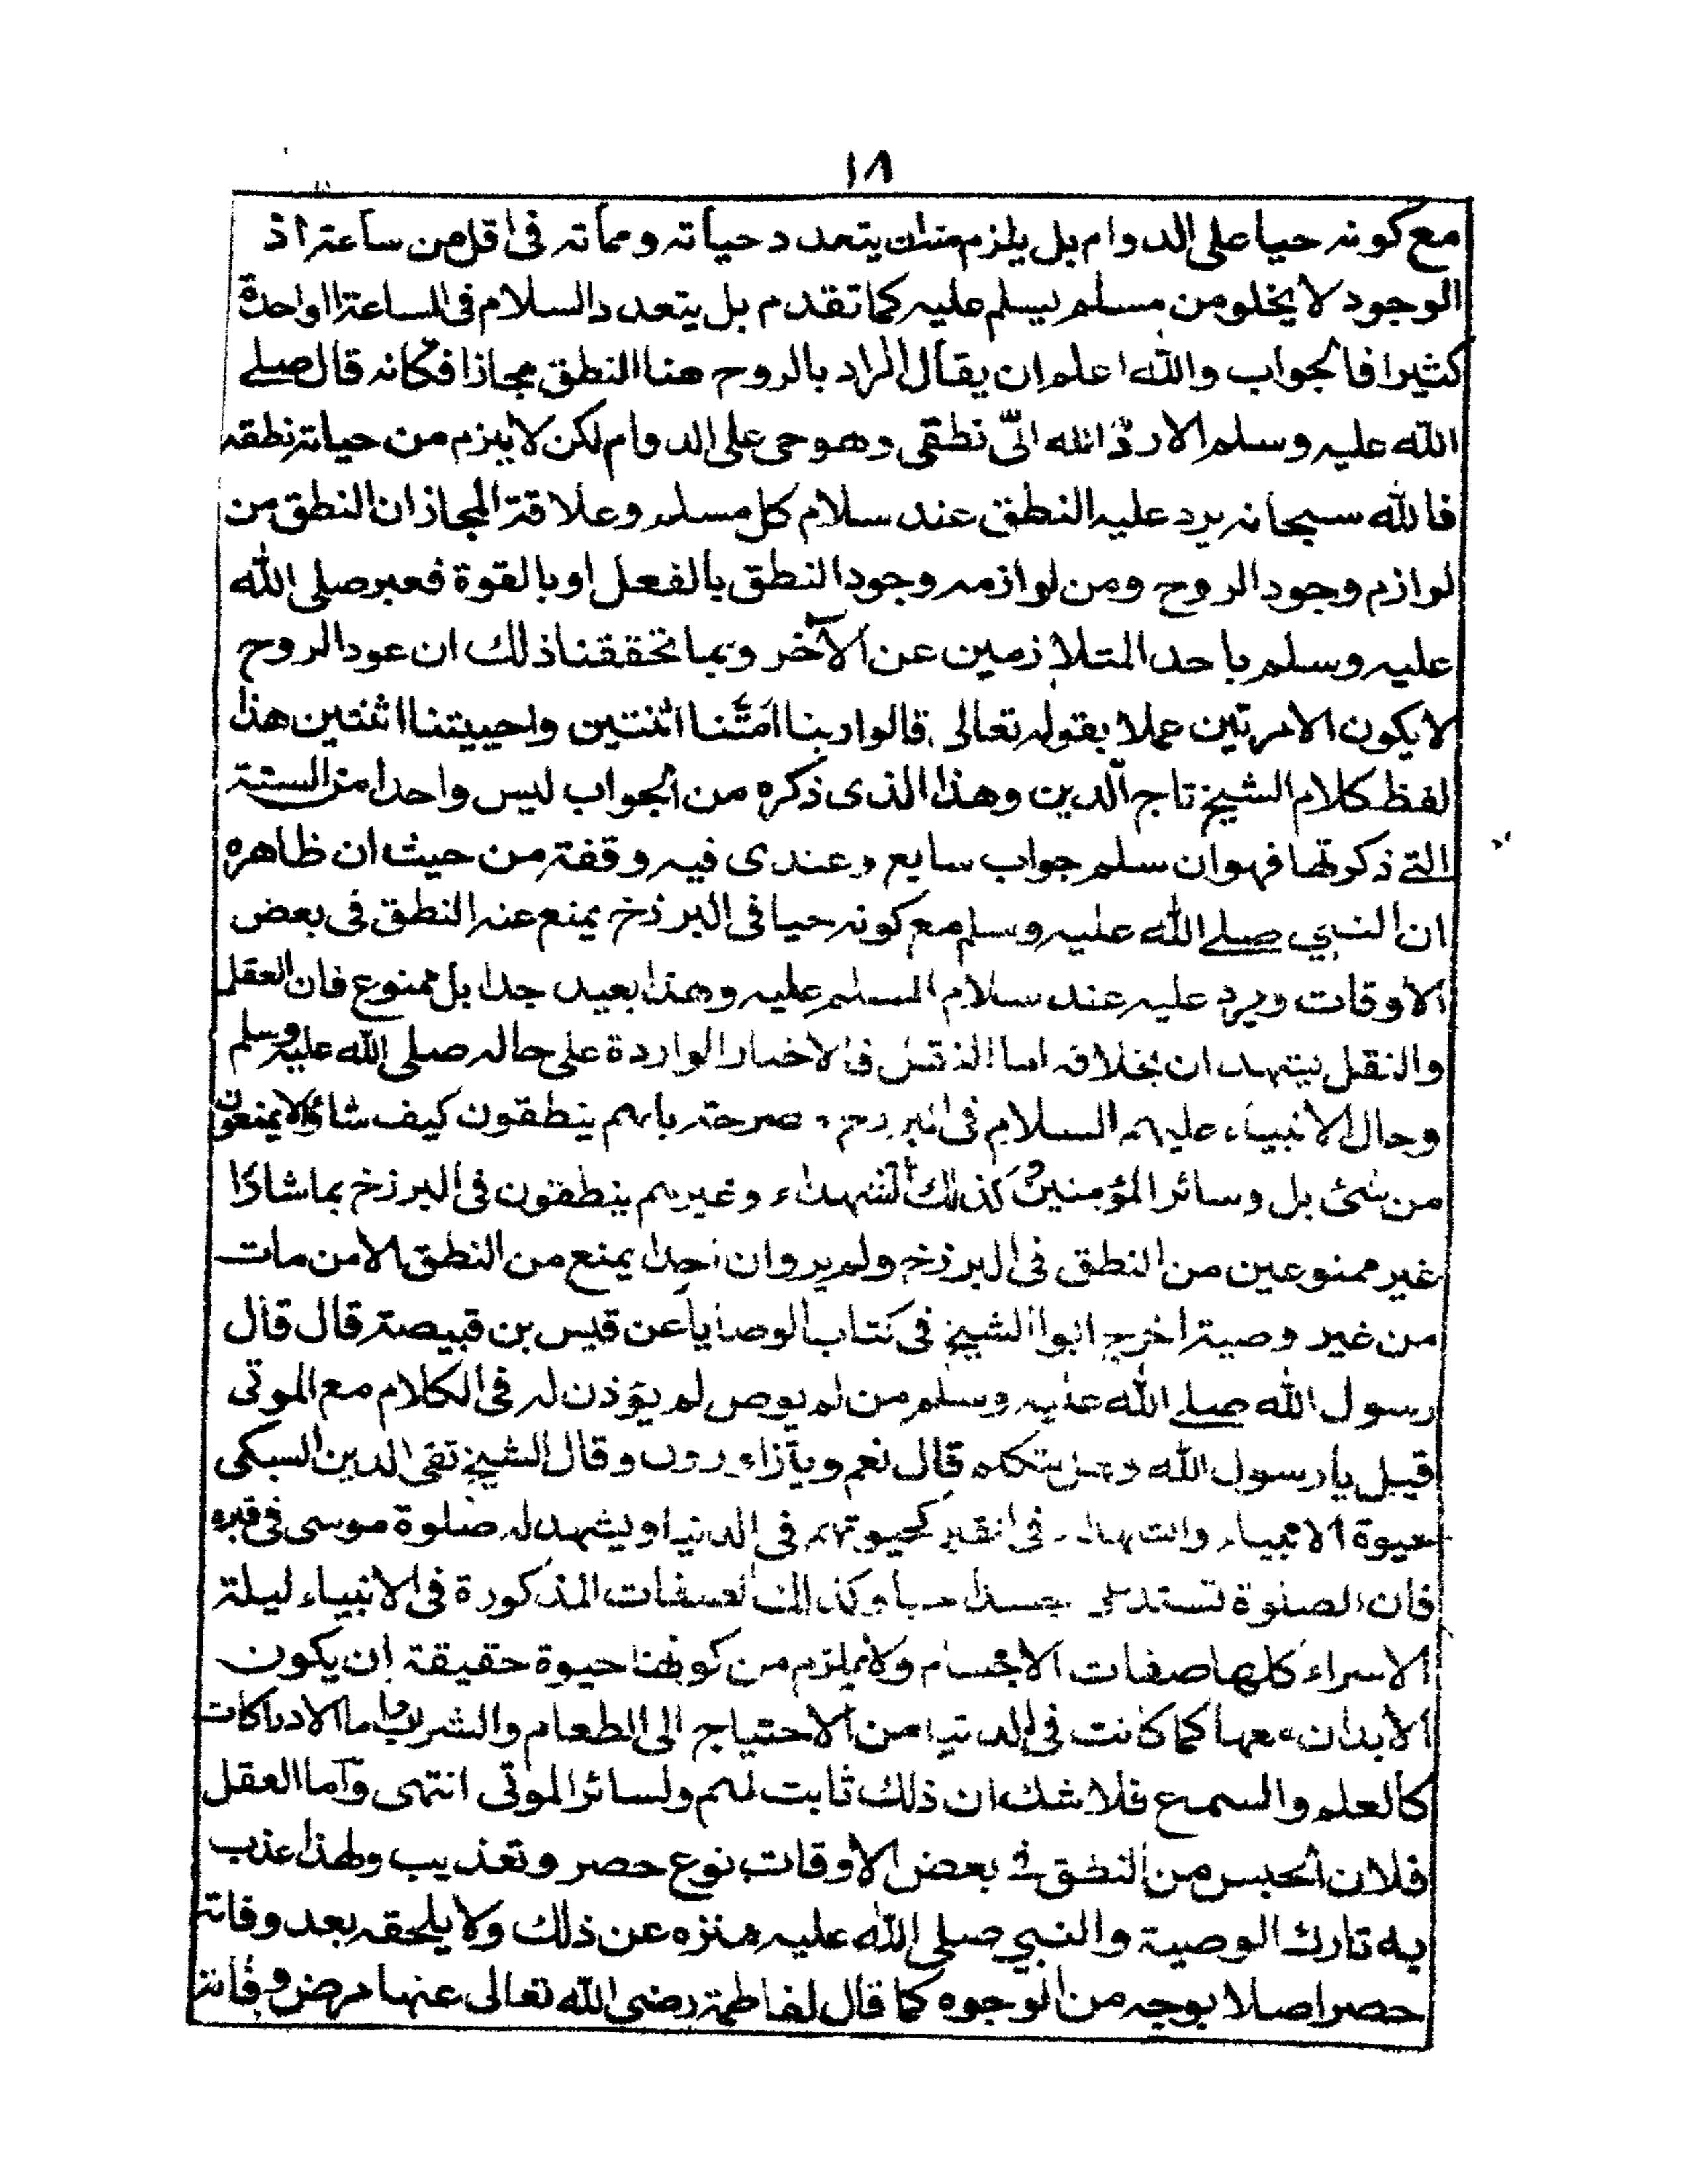 ١٨
مع كونه حيا على الدوام بل يلزم منه ان يتعدد حياته ومماته فى اقل من ساعة اذ
الوجود لا يخلو من مسلم يسلم عليه كما تقدم بل يتعدد السلام فى الساعة الواحدة
كثيرا فالجواب والله اعلم ان يقال المراد بالروح هنا النطق مجازا فكانه قال صلى
الله عليه وسلم الا ردّ الله الىّ نطقى وهو حى على الدوام لكن لا يلزم من حياته نطقه
فالله سبحانه يرد عليه النطق عند سلام كل مسلم وعلاقة المجاز ان النطق من
لوازم وجود الروح ومن لوازمه وجود النطق بالفعل او بالقوة فعبر صلى الله
عليه وسلم باحد المتلازمين عن الآخر وبما تحققنا ذلك ان عود الروح
لا يكون الا مرتين عملا بقوله تعالى قالوا ربنا امَتَّنا اثنتين واحييتنا اثنتين هذا
لفظ كلام الشيخ تاج الدين وهذا الذى ذكره من الجواب ليس واحدا من الستة
التى ذكرتها فهو ان سلم جواب سايع وعندى فيه وقفة من حيث ان ظاهره
ان النبي صلى الله عليه وسلم مع كونه حيا فى البرزخ يمنع عنه النطق فى بعض
الاوقات ويرد عليه عند سلام المسلم عليه وهذا بعيد جدا بل ممنوع فان العقل
والنقل يشهدان بخلافه اما النقل فالاخبار الواردة على حاله صلى الله عليه وسلم
وحال الانبياء عليهم السلام فى البرزخ مصرحة بانهم ينطقون كيف شاؤا لا يمنعون
من شئ بل وسائر المؤمنين كذلك الشهداء وغيرهم ينطقون فى البرزخ بما شاؤا
غير ممنوعين من النطق فى البرزخ ولم يرو ان احدا يمنع من النطق الا من مات
من غير وصية اخرج ابوا الشيخ فى كتاب الوصايا عن قيس بن قبيصة قال قال
رسول الله صلى الله عليه وسلم من لم يوص لم يؤذن له فى الكلام مع الموتى
قيل يا رسول الله وهل يتكلم قال نعم ويتزاورون وقال الشيخ تقى الدين السبكى
حيوة الانبياء والشهداء فى القبر كحيوتهم فى الدنيا ويشهد له صلوة موسى فى قبره
فان الصلوة تستدعى جسدا حيا وكذلك الصفات المذكورة فى الانبياء ليلة
الاسراء كلها صفات الاجسام ولا يلزم من كونها حيوة حقيقة ان يكون
الابدان معها كما كانت فى الدنيا من الاحتياج الى الطعام والشرب واما الادراكات
كالعلم والسمع فلا شك ان ذلك ثابت لهم ولسائر الموتى انتهى وآما العقل
فلان الحبس من النطق فى بعض الاوقات نوع حصر وتعذيب ولهذا عذب
به تارك الوصية والنبي صلى الله عليه منزه عن ذلك ولا يلحقه بعد وفاته
حصر اصلا بوجه من الوجوه كما قال لفاطمة رضى الله تعالى عنها مرض وفاته